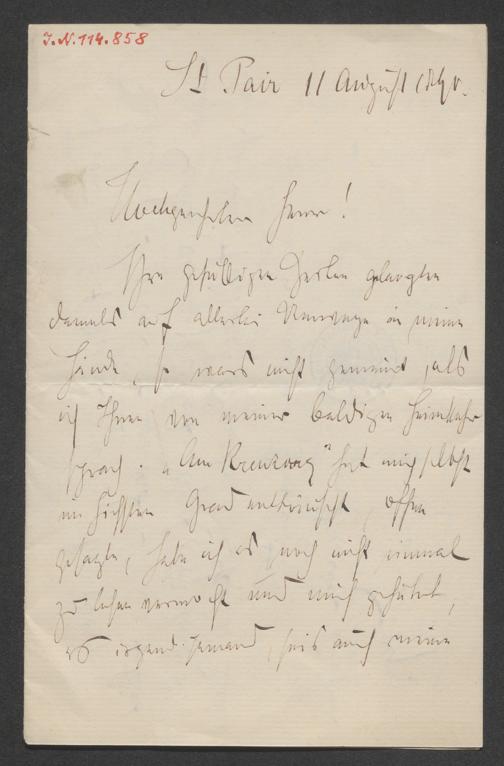 J.N. 114.858
St Pair 11 August 1890.
Hochgeehrter Herr!
Ihre gefälligen Zeilen gelangten
damals auf allerlei Umwege in meine
Hände, so wars nicht gemeint, als
ich Ihnen von meiner baldigen Heimkehr
sprach. „Am Kreuzweg" hat mich selbst
im höchsten Grad enttäuscht, offen
gesagt, habe ich es noch nicht einmal
zu lesen vermocht und mich gehütet,
es irgend jemand, seis auch meine